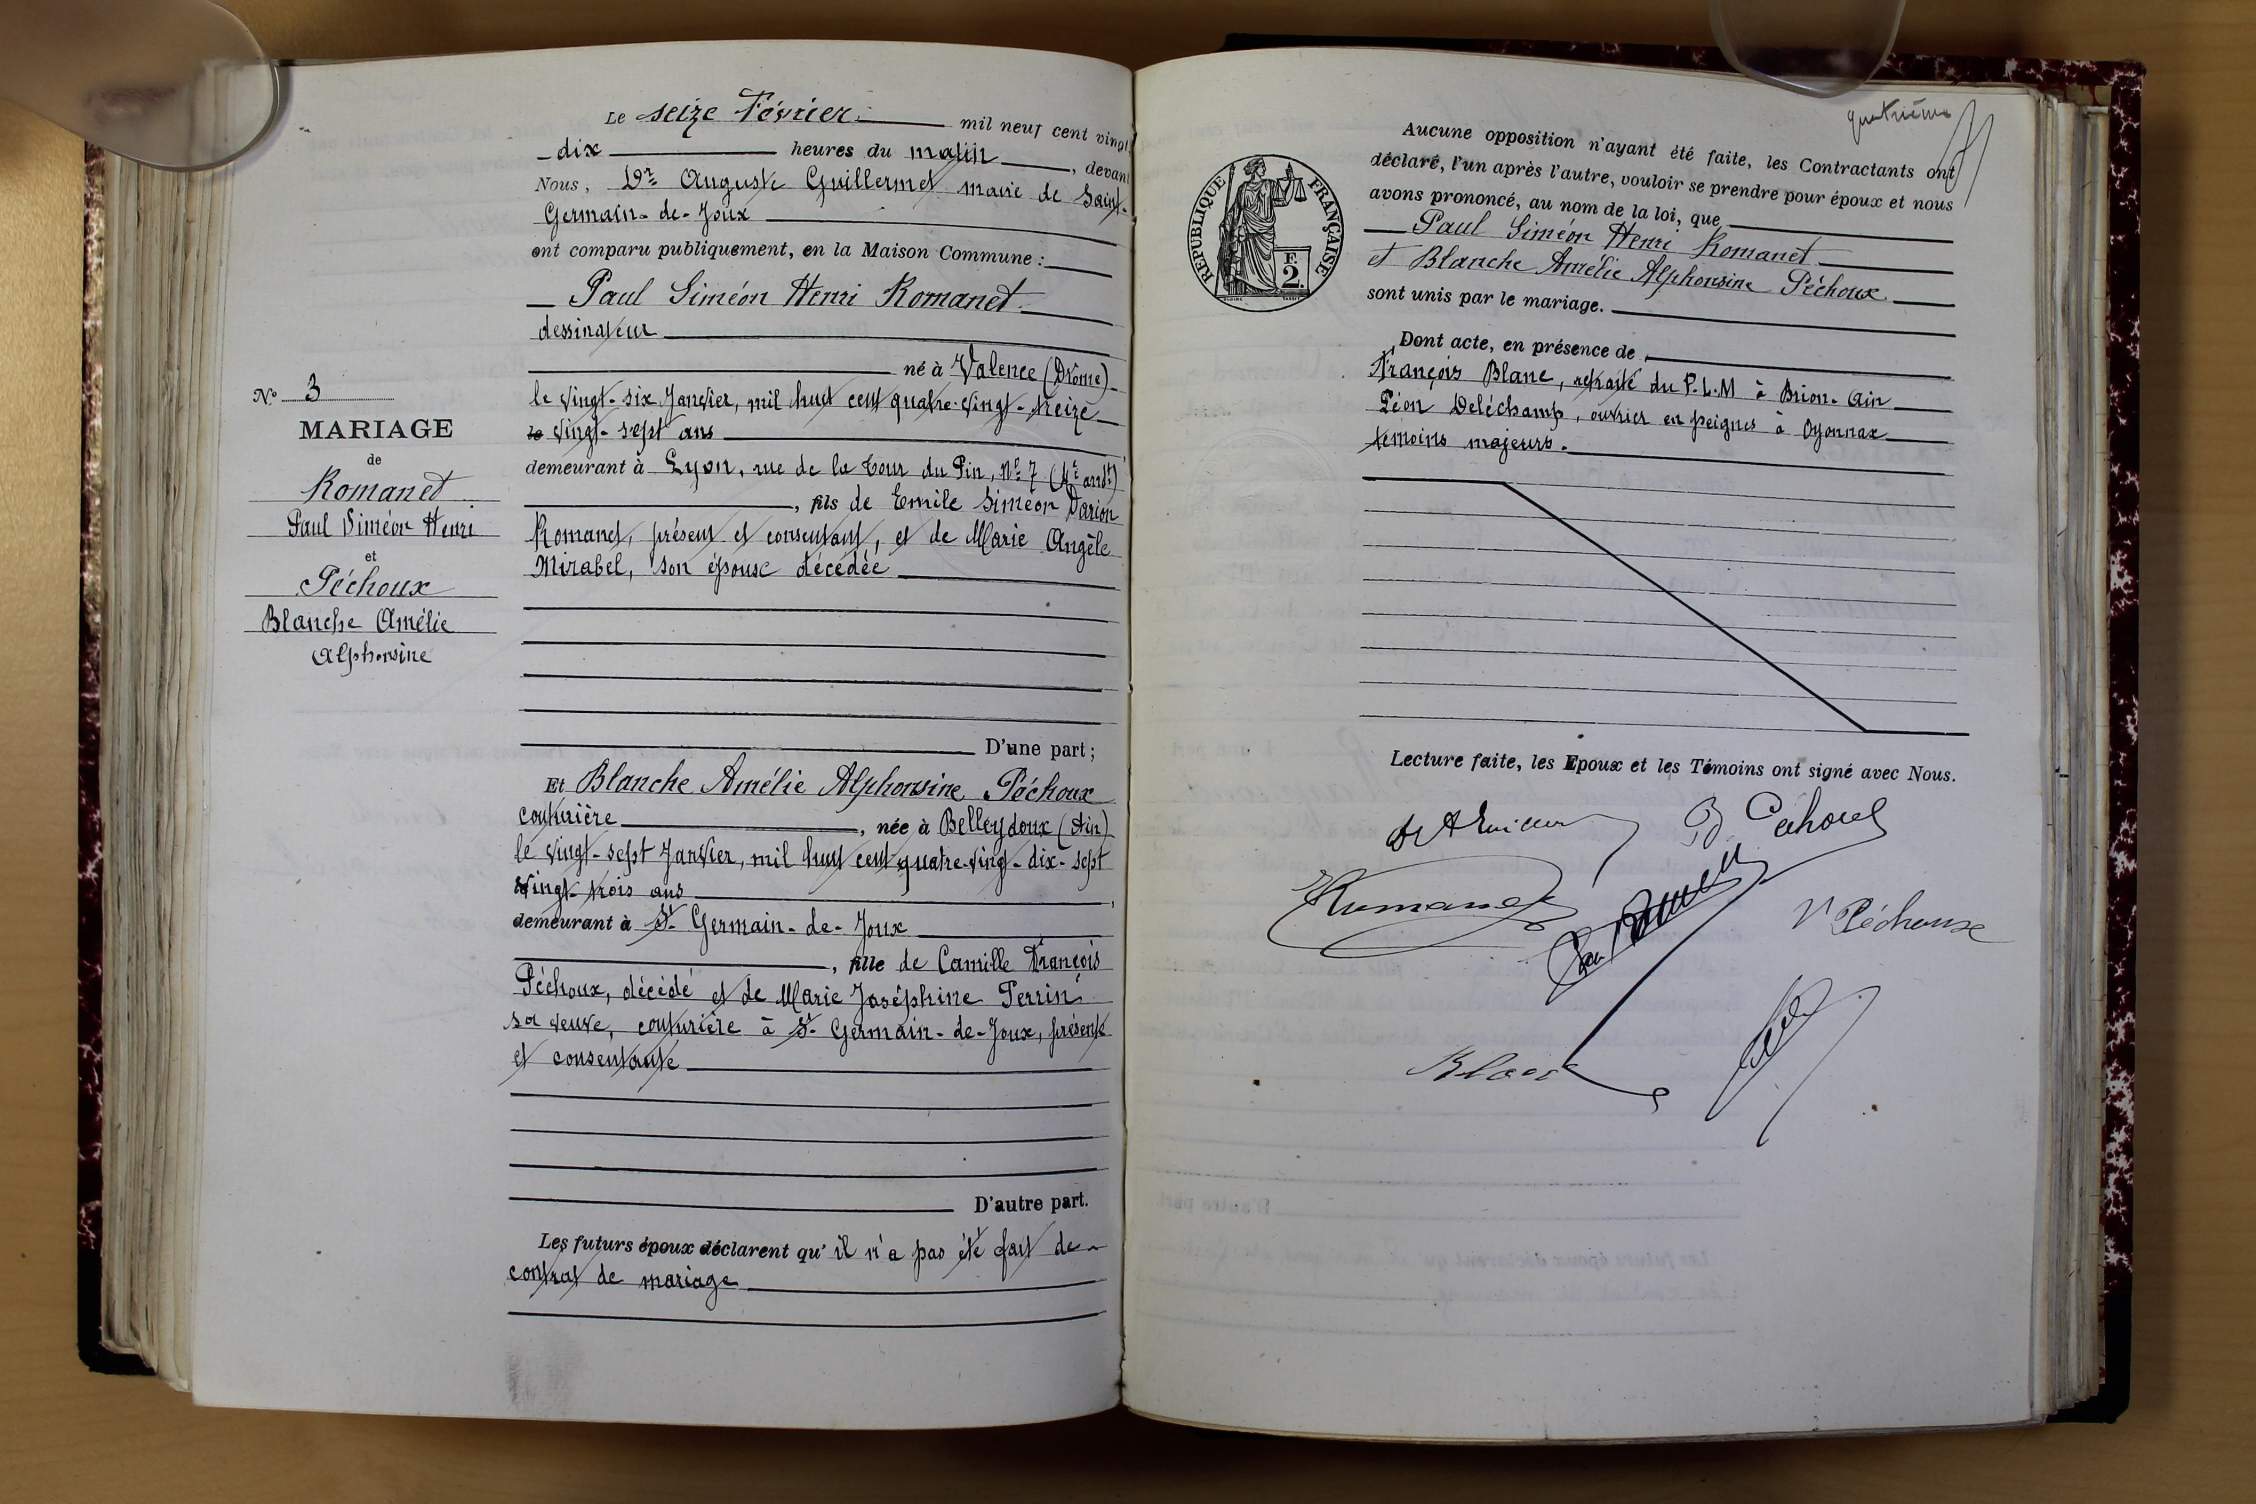 Le seize Février. mil neuf cent vingt
dix heures du matin, devant
Nous, Dr Auguste Guillermet maire de Saint-
Germain-de-Joux
ont comparu publiquement, en la Maison Commune :
Paul Siméon Henri Romanet.
dessinateur
né à Valence (Drôme)
le vingt-six Janvier, mil huit cent quatre-vingt-treize
vingt-sept ans
demeurant à Lyon, rue de la Tour du Pin, No 7 (4e arrdt)
, fils de Emile Siméon Darion
Romanet, présent et consentant, et de Marie Angèle
Mirabel, son épouse décédée
D'une part ;
No 3
MARIAGE
de
Romanet
Paul Siméon Henri
et
Péchoux
Blanche Amélie
Alphonsine
Et Blanche Amélie Alphonsine Péchoux
couturière, née à Belleydoux (Ain)
le vingt-sept Janvier, mil huit cent quatre-vingt-dix-sept
vingt-trois ans
demeurant à St Germain-de-Joux
, fille de Camille François
Péchoux, décédé et de Marie Joséphine Perrin
sa veuve, couturière à St Germain-de-Joux, présente
et consentante
D'autre part.
Les futurs époux déclarent qu'il n'a pas été fait de
contrat de mariage
quatrième
Aucune opposition n'ayant été faite, les Contractants ont
déclaré, l'un après l'autre, vouloir se prendre pour époux et nous
avons prononcé, au nom de la loi, que
Paul Siméon Henri Romanet
et Blanche Amélie Alphonsine Péchoux
sont unis par le mariage.
RÉPUBLIQUE FRANÇAISE
F.
2.
Dont acte, en présence de
François Blanc, retraité du P.L.M à Brion-Ain
Léon Deléchamp, ouvrier en peignes à Oyonnax
témoins majeurs.
Lecture faite, les Epoux et les Témoins ont signé avec Nous.
B Péchoux
Romanet
Romanet
V Péchoux
Blanc